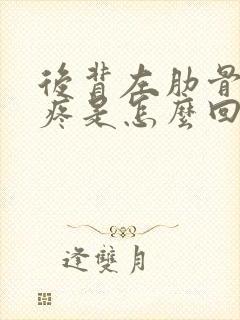 後背左肋骨
疼是怎麼回
逢雙月